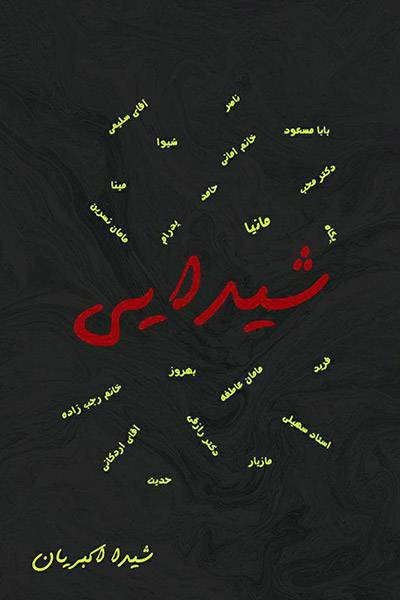 ناصر
آقای سلیمی
بابا مسعود
شیوا
خانم امانی
دکتر محب
مینا
حامد
مامان نسرین
پدرام
مانیا
پگاه
شیدایی
فرید
بهروز
مامان عاطفه
خانم رجب زاده
استاد سهیلی
دکتر رازقی
آقای اردکانی
مازیار
حدیث
شیدا اکبریان